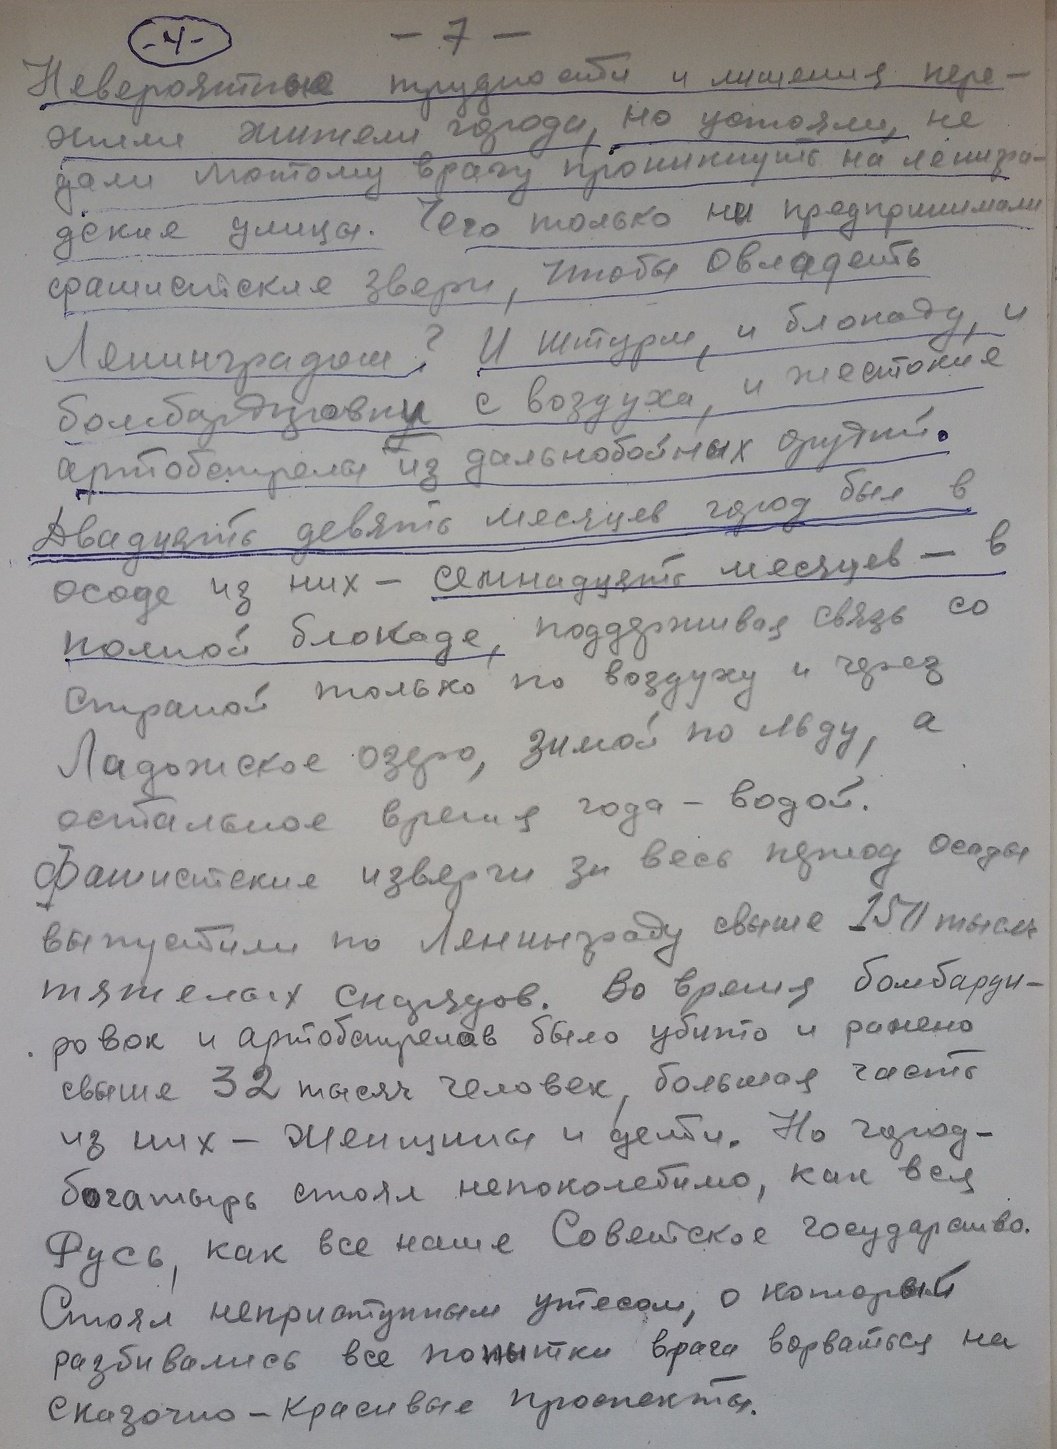 -4- - 7 -
Невероятные трудности и лишения пере-
жили жители города, но устояли, не
дали лютому врагу проникнуть на ленингра-
дские улицы. Чего только ни предпринимали
фашистские звери, чтобы овладеть
Ленинградом? И штурм, и блокаду, и
бомбардировку с воздуха, и жестокие
артобстрелы из дальнобойных орудий.
Двадцать девять месяцев город был в
осаде из них - семнадцать месяцев - в
полной блокаде, поддерживая связь со
страной только по воздуху и через
Ладожское озеро, зимой по льду, а
остальное время года - водой.
Фашистские изверги за весь период осады
выпустили по Ленинграду свыше тысяч
тяжелых снарядов. Во время бомбарди-
ровок и артобстрелов было убито и ранено
свыше 32 тысяч человек, большая часть
из них - женщины и дети. Но город-
богатырь стоял непоколебимо, как вся
Русь, как все наше Советское государство.
Стоял неприступным утесом, о который
разбивались все попытки врага ворваться на
сказочно-красивые проспекты.